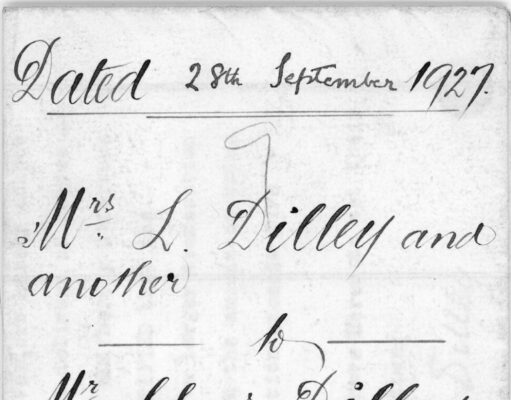 Dated 28th September 1927.
Mrs. L. Dilley and
another
to
Mr